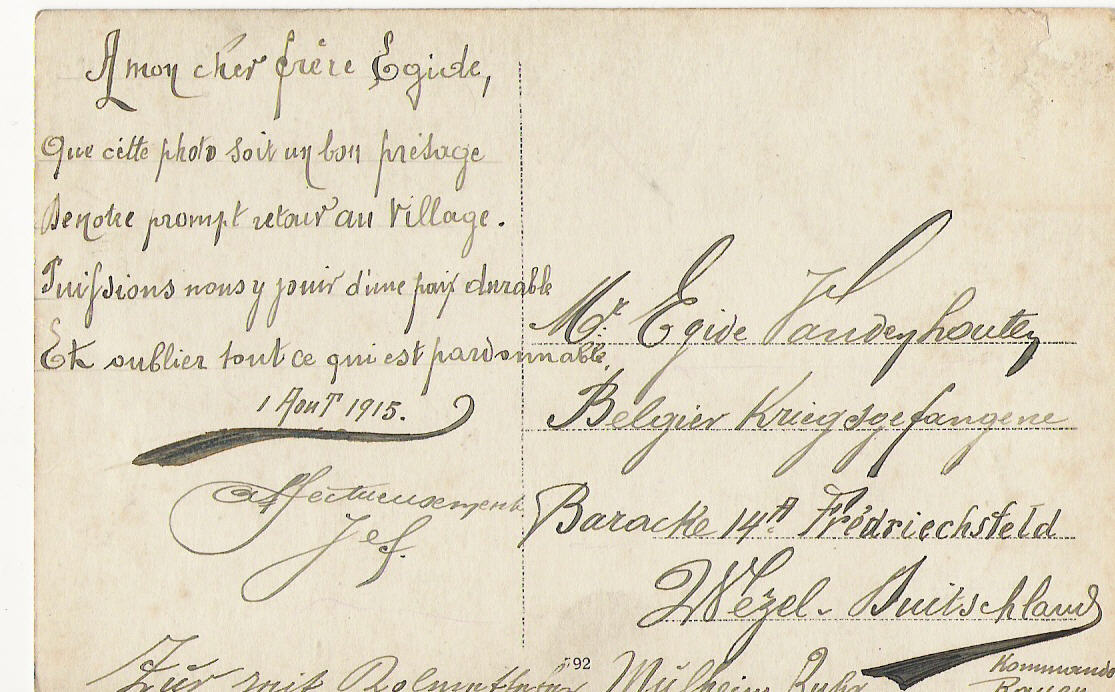 A mon cher frère Egide,
Que cette photo soit un bon présage
De notre prompt retour au Village.
Puissions nous y jouir d'une paix durable
Et oublier tout ce qui est pardonnable,
1 Août 1915.
Affectueusement
Jef.
Mr. Egide Vandenhouten
Belgier Kriegsgefangene
Baracke 14A Frédriechsfeld
Wezel - Duitschland
92
Zur mit Mülheim Ruhr
Kommando